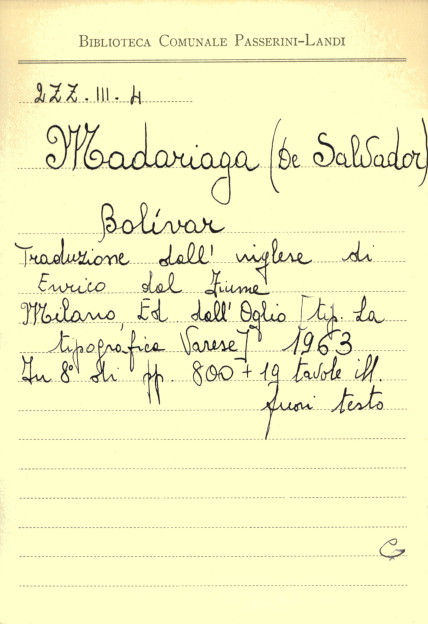 BIBLIOTECA COMUNALE PASSERINI-LANDI
2ZZ.III.4
Madariaga (De Salvador)
Bolívar
Traduzione dall' inglese di
Enrico dal Fiume
Milano, Ed dall'Oglio [tip. La
tipografica Varese] 1963
In 8° di pp. 800 + 19 tavole ill.
fuori testo
G